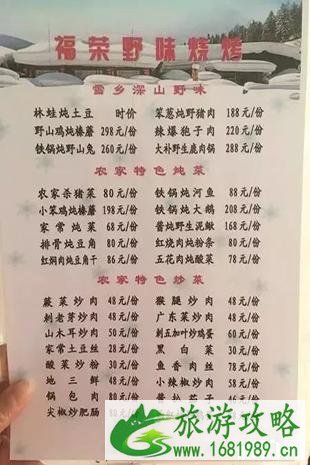 福荣野味烧烤
雪乡深山野味
林蛙炖土豆 时价 笨葱炖野猪肉 188元/份
野山鸡炖榛蘑 298元/份 辣爆狍子肉 220元/份
铁锅炖野山兔 260元/份 大补野生鹿肉锅 288元/份
农家特色炖菜
农家杀猪菜 80元/份 铁锅炖河鱼 88元/份
小笨鸡炖榛蘑 198元/份 铁锅炖大鹅 208元/份
家常炖菜 68元/份 酱炖野生泥鳅 168元/份
排骨炖豆角 80元/份 红烧肉炖粉条 80元/份
红焖肉炖豆角干 86元/份 五花肉炖酸菜 78元/份
农家特色炒菜
蕨菜炒肉 48元/份 猴腿炒肉 48元/份
刺老芽炒肉 48元/份 广东菜炒肉 48元/份
山木耳炒肉 50元/份 刺五加叶炒鸡蛋 60元/份
家常土豆丝 28元/份 黑白菜 30元/份
酸菜炒粉 30元/份 鱼香肉丝 78元/份
地三鲜 48元/份 小辣椒炒肉 58元/份
锅包肉 80元/份 酱扒茄子 46元/份
尖椒炒肥肠
旅游攻略
www.1681989.cn